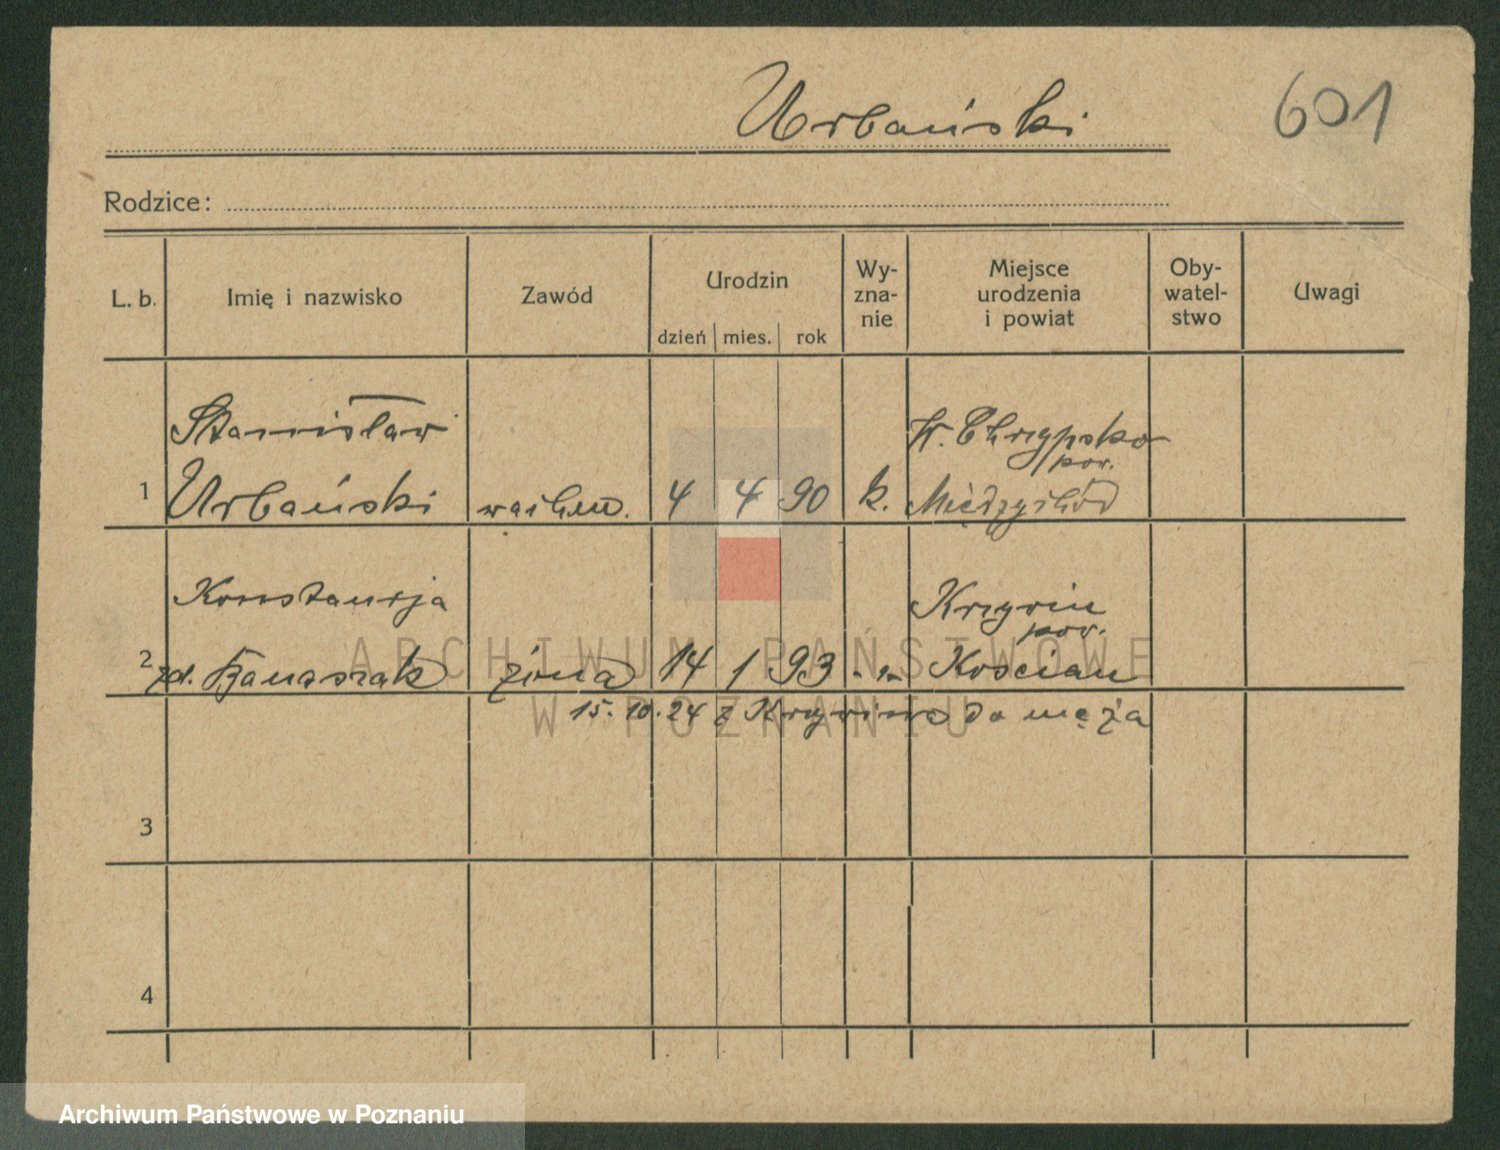 Urbański
601
Rodzice:
L. b.
Imię i nazwisko
Zawód
Urodzin
dzień mies. rok
Wy-
zna-
nie
Miejsce
urodzenia
i powiat
Oby-
watel-
stwo
Uwagi
Stanisław
W. Chrzypsko
pow.
1 Urbański 4 4 90 k. Międzychód
Konstancja
Krzywin
pow.
2 zd. Banaszak żona 14 1 93 - " - Kościan
15.10.24 z Krzywina do męża
3
4
ARCHIWUM PAŃSTWOWE
W POZNANIU
Archiwum Państwowe w Poznaniu